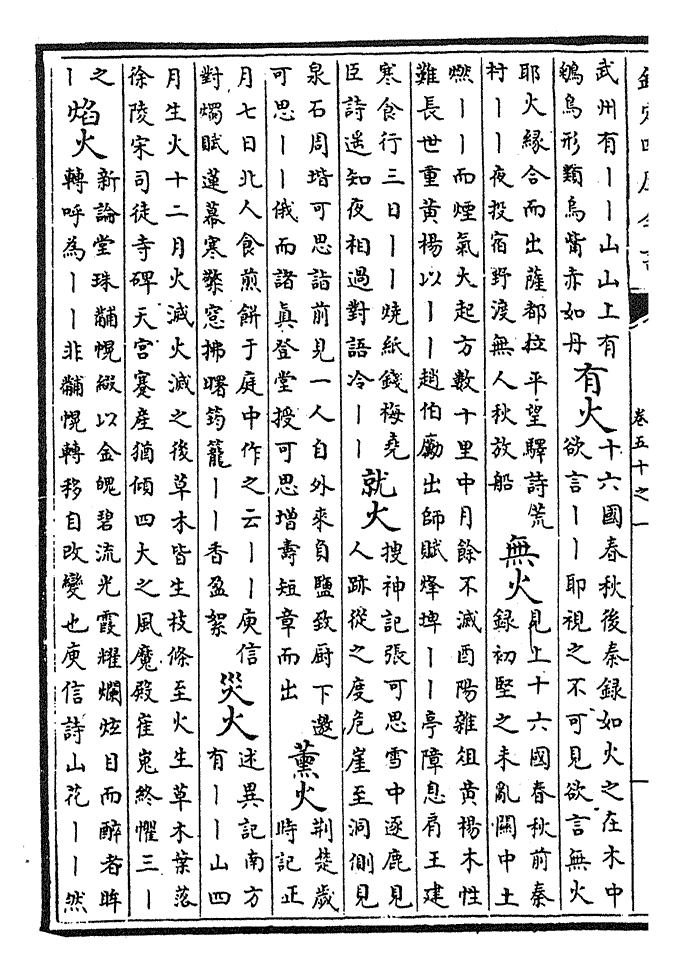 欽定四庫全書 卷五十之一
武州有丨丨山山上有
鵷鳥形類烏觜赤如丹
有火
十六國春秋後秦録如火之在木中
欲言丨丨即視之不可見欲言無火
耶火縁合而出薩都拉平望驛詩荒
村丨丨夜投宿野渡無人秋放船
無火
見上十六國春秋前秦
録初堅之未亂闗中土
燃丨丨而煙氣大起方數十里中月餘不滅酉陽雜俎黄楊木性
難長世重黄楊以丨丨趙伯勵出師賦烽埤丨丨亭障息肩王建
寒食行三日丨丨燒紙錢梅堯
臣詩遥知夜相過對語冷丨丨
就火
搜神記張可思雪中逐鹿見
人跡從之度危崖至洞側見
泉石周堦可思詣前見一人自外來負鹽致厨下邀
可思丨丨俄而諸真登堂授可思增壽短章而出
薰火
荆楚歲
時記正
月七日北人食煎餅于庭中作之云丨丨庾信
對燭賦蓮幕寒檠窓拂曙筠籠丨丨香盈絮
災火
述異記南方
有丨丨山四
月生火十二月火滅火滅之後草木皆生枝條至火生草木葉落
徐陵宋司徒寺碑天宫蹇産猶傾四大之風魔殿崔嵬終懼三丨
之
丨
焰火
新論堂珠黼幌綴以金魄碧流光霞耀爛炫目而醉者眸
轉呼為丨丨非黼幌轉移自改變也庾信詩山花丨丨然